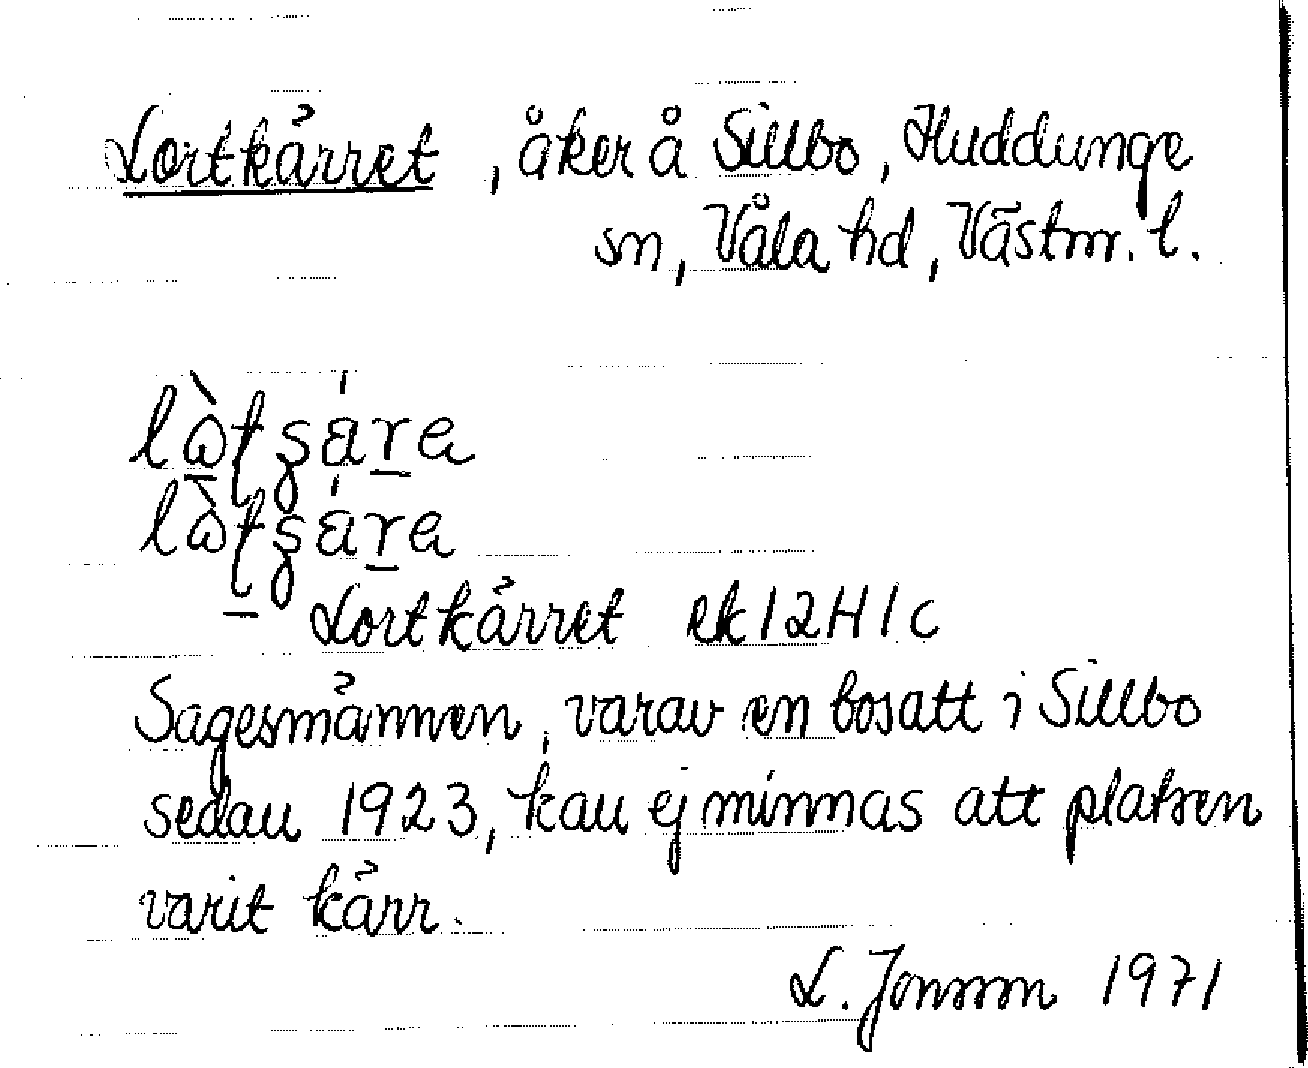 Lortkärret, åker å Sillbo, Huddunge
sn, Våla hd, Västm. l.
Lortkärret ek 12H1c
Sagesmännen, varav en bosatt i Sillbo
sedan 1923, kan ej minnas att platsen
varit kärr.
L. Jonsson 1971